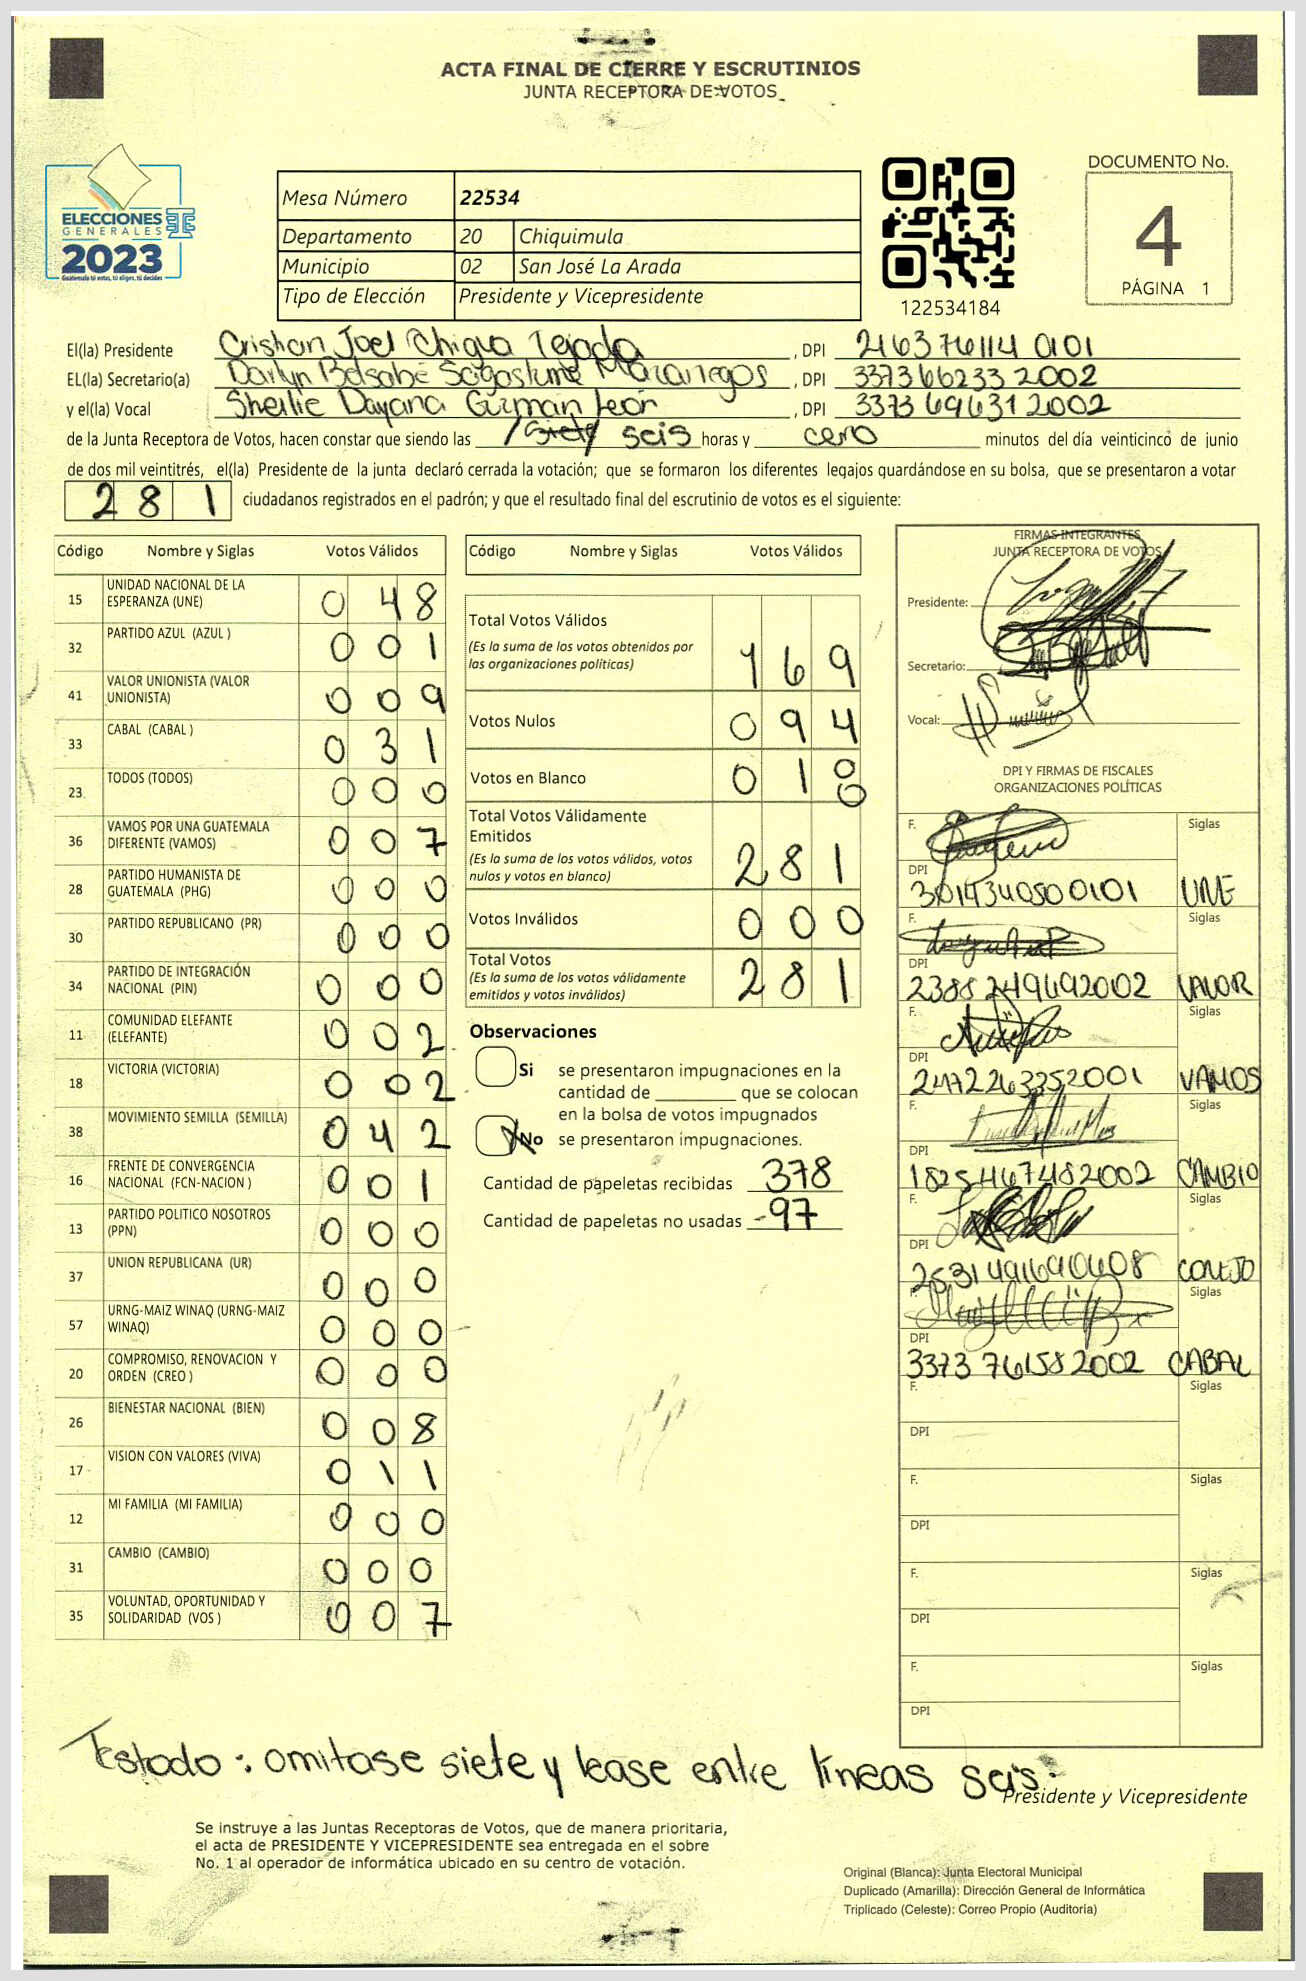 ACTA FINAL DE CIERRE Y ESCRUTINIOS
JUNTA RECEPTORA DE VOTOS
ELECCIONES
GENERALES
2023
Guatemala tú votas, tú eliges, tú decides
Mesa Número 22534
Departamento 20 Chiquimula
Municipio 02 San José La Arada
Tipo de Elección Presidente y Vicepresidente
122534184
DOCUMENTO No.
4
PÁGINA 1
El(la) Presidente Cristian Joel Chigua Tejada, DPI 2163761140101
EL(la) Secretario(a) Darlyn Betsabé Sagastume, DPI 337366233 2002
y el(la) Vocal Sheilie Dayana Guzman León, DPI 3373 69631 2002
de la Junta Receptora de Votos, hacen constar que siendo las /siete/ seis horas y cero minutos del día veinticinco de junio
de dos mil veintitrés, el(la) Presidente de la junta declaró cerrada la votación; que se formaron los diferentes legajos guardándose en su bolsa, que se presentaron a votar
281 ciudadanos registrados en el padrón; y que el resultado final del escrutinio de votos es el siguiente:
Código Nombre y Siglas Votos Válidos
15 UNIDAD NACIONAL DE LA ESPERANZA (UNE) 048
32 PARTIDO AZUL (AZUL ) 001
41 VALOR UNIONISTA (VALOR UNIONISTA) 009
33 CABAL (CABAL ) 031
23 TODOS (TODOS) 000
36 VAMOS POR UNA GUATEMALA DIFERENTE (VAMOS) 007
28 PARTIDO HUMANISTA DE GUATEMALA (PHG) 000
30 PARTIDO REPUBLICANO (PR) 000
34 PARTIDO DE INTEGRACIÓN NACIONAL (PIN) 000
11 COMUNIDAD ELEFANTE (ELEFANTE) 002
18 VICTORIA (VICTORIA) 002
38 MOVIMIENTO SEMILLA (SEMILLA) 042
16 FRENTE DE CONVERGENCIA NACIONAL (FCN-NACION ) 001
13 PARTIDO POLITICO NOSOTROS (PPN) 000
37 UNION REPUBLICANA (UR) 000
57 URNG-MAIZ WINAQ (URNG-MAIZ WINAQ) 000
20 COMPROMISO, RENOVACION Y ORDEN (CREO ) 000
26 BIENESTAR NACIONAL (BIEN) 008
17 VISION CON VALORES (VIVA) 011
12 MI FAMILIA (MI FAMILIA) 000
31 CAMBIO (CAMBIO) 000
35 VOLUNTAD, OPORTUNIDAD Y SOLIDARIDAD (VOS ) 007
Código Nombre y Siglas Votos Válidos
Total Votos Válidos 169
(Es la suma de los votos obtenidos por
las organizaciones políticas)
Votos Nulos 094
Votos en Blanco 018
Total Votos Válidamente
Emitidos 281
(Es la suma de los votos válidos, votos
nulos y votos en blanco)
Votos Inválidos 000
Total Votos 281
(Es la suma de los votos válidamente
emitidos y votos inválidos)
Observaciones
Si se presentaron impugnaciones en la
cantidad de ________ que se colocan
en la bolsa de votos impugnados
No se presentaron impugnaciones.
Cantidad de papeletas recibidas 378
Cantidad de papeletas no usadas -97
FIRMAS INTEGRANTES
JUNTA RECEPTORA DE VOTOS
Presidente:
Secretario:
Vocal:
DPI Y FIRMAS DE FISCALES
ORGANIZACIONES POLÍTICAS
F. Siglas
DPI 3014340500101 UNE
F. Siglas
DPI 2388249692002 VALOR
F. Siglas
DPI 2472263352001 VAMOS
F. Siglas
DPI 1825467482002 CAMBIO
F. Siglas
DPI 2531491690608 CONEJO
F. Siglas
DPI 3373761582002 CABAL
F. Siglas
DPI
F. Siglas
DPI
F. Siglas
DPI
F. Siglas
DPI
Testado: omitase siete y lease entre lineas seis.
Presidente y Vicepresidente
Se instruye a las Juntas Receptoras de Votos, que de manera prioritaria,
el acta de PRESIDENTE Y VICEPRESIDENTE sea entregada en el sobre
No. 1 al operador de informática ubicado en su centro de votación.
Original (Blanca): Junta Electoral Municipal
Duplicado (Amarilla): Dirección General de Informática
Triplicado (Celeste): Correo Propio (Auditoría)